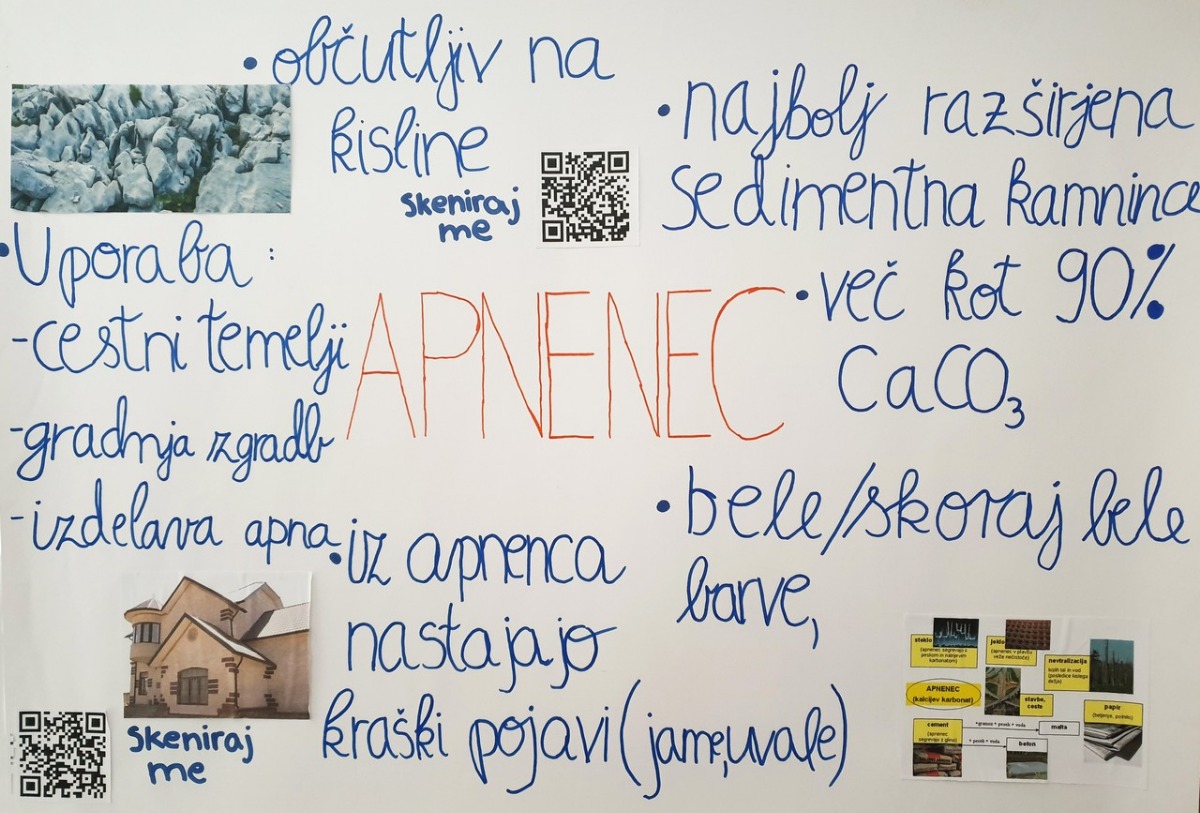 • občutljiv na
kisline
skeniraj
me
• najbolj razširjena
sedimentna kamnina
• več kot 90%
CaCO₃
• Uporaba :
- cestni temelji
- gradnja zgradb
- izdelava apna
APNENEC
• bele/skoraj bele
barve,
• iz apnenca
nastajajo
kraški pojavi (jame, uvale)
skeniraj
me
steklo
(apnenec segrevajo s
peskom in natrijevim
karbonatom)
jeklo
(apnenec v plavžu
veže nečistoče)
nevtralizacija
kislih tal in vod
(posledice kislega
dežja)
APNENEC
(kalcijev karbonat)
stavbe,
ceste
papir
(beljenje, polnilo)
cement
(apnenec
segrevajo z glino)
+gramoz + pesek + voda
malta
+ pesek + voda
beton